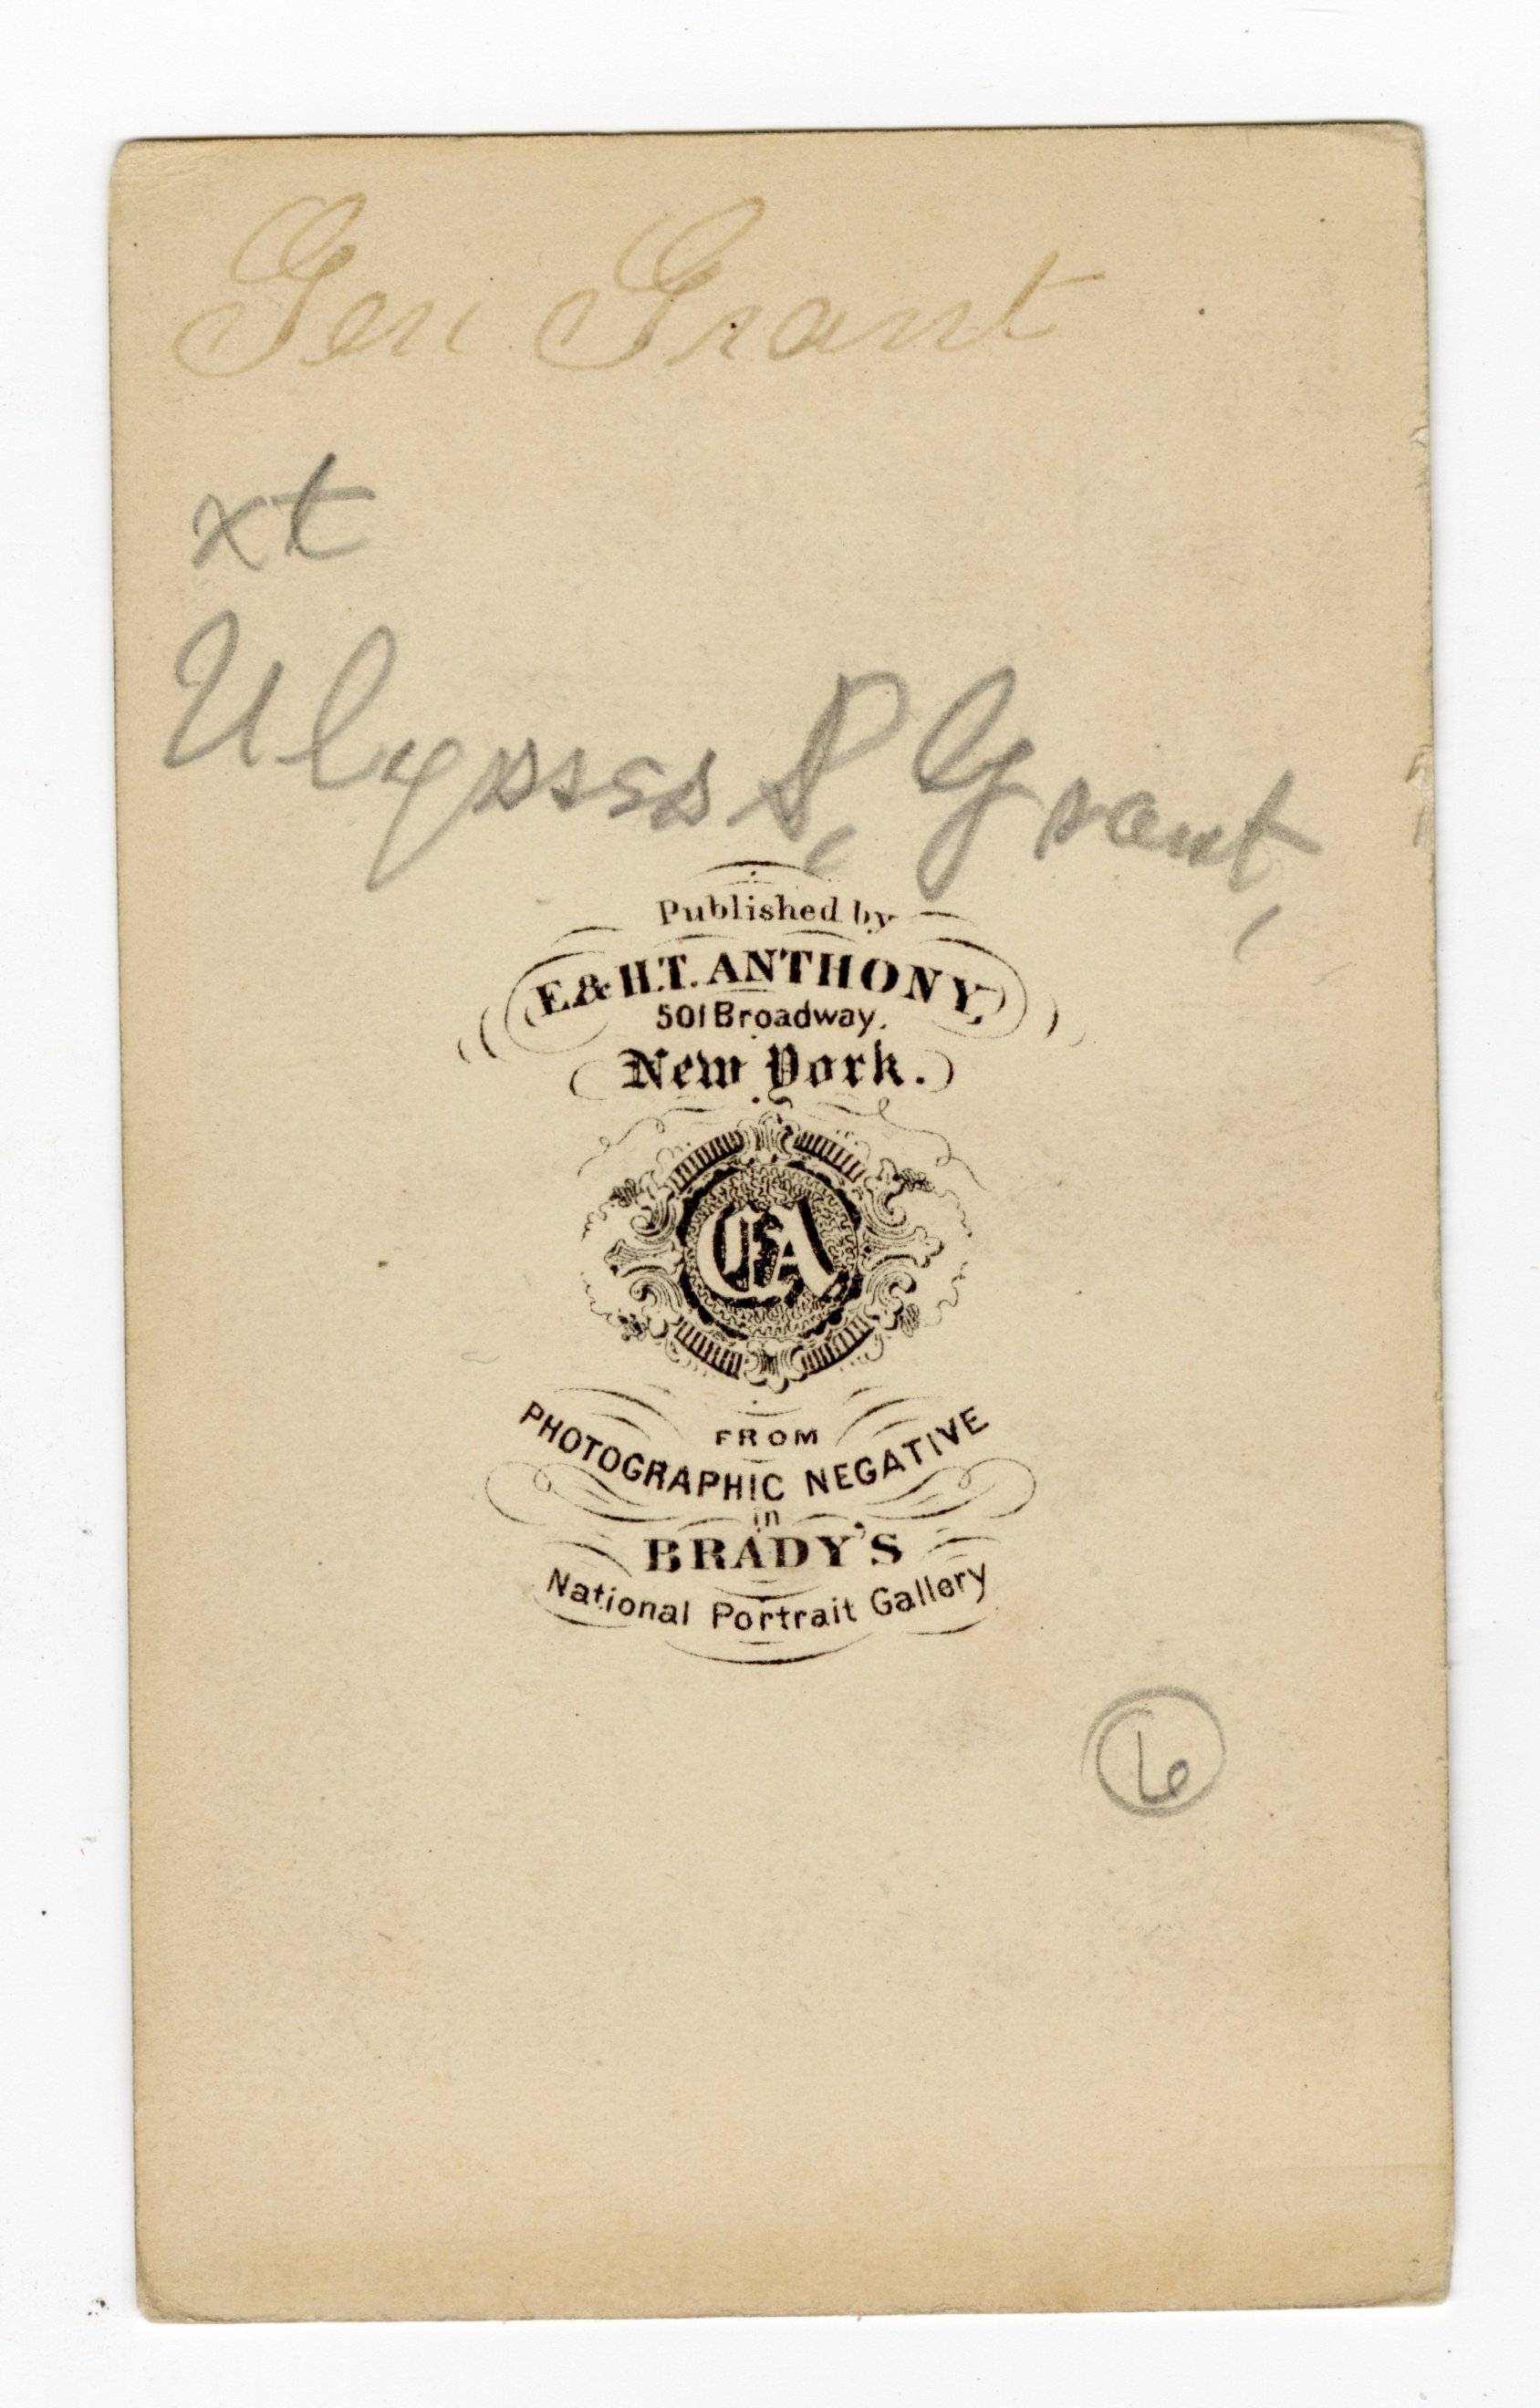 Gen Grant
xt
Ulysses S, Grant,
Published by
E. & H.T. ANTHONY,
501 Broadway.
New York.
EA
FROM
PHOTOGRAPHIC NEGATIVE
in
BRADY'S
National Portrait Gallery
6